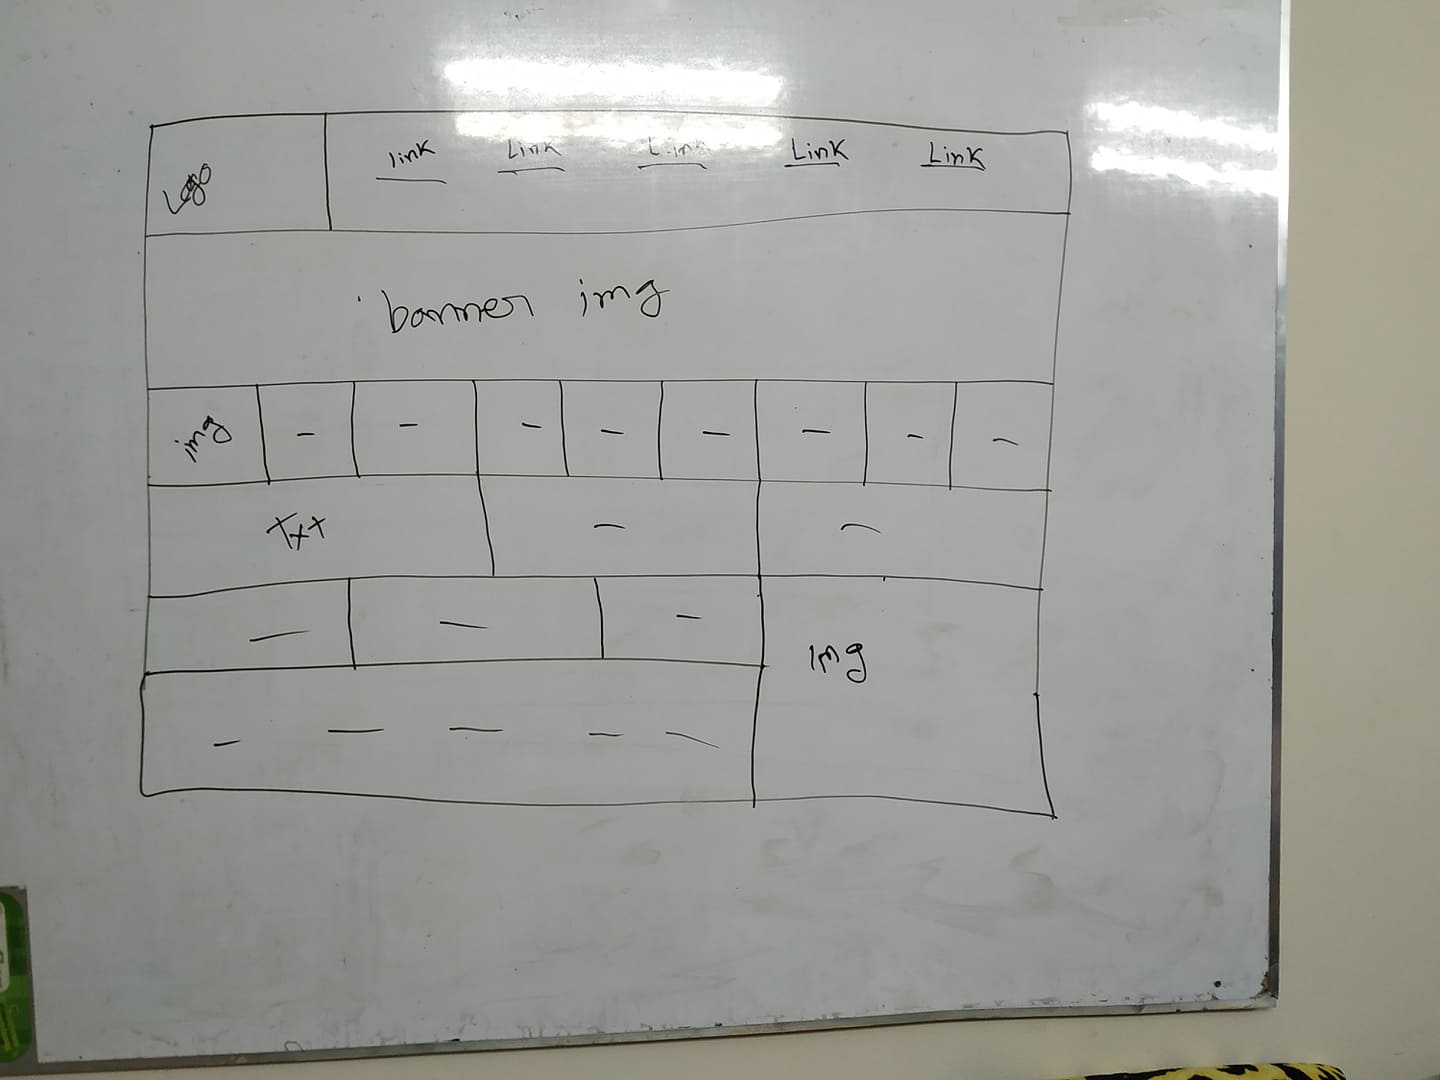 Logo link Link Link Link Link
banner img
img - - - - - - - -
Txt - -
- - - img
- - - - -